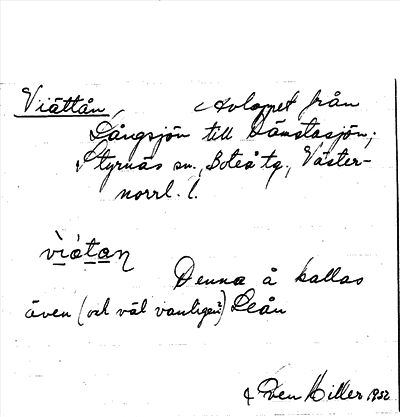 Viättån, Avloppet från
Långsjön till Dämstasjön;
Styrnäs sn., Boteå tg, Väster-
norrl. l.
vìátan
Denna å kallas
även (och väl vanligen?) Leån
Sven Hiller 1932